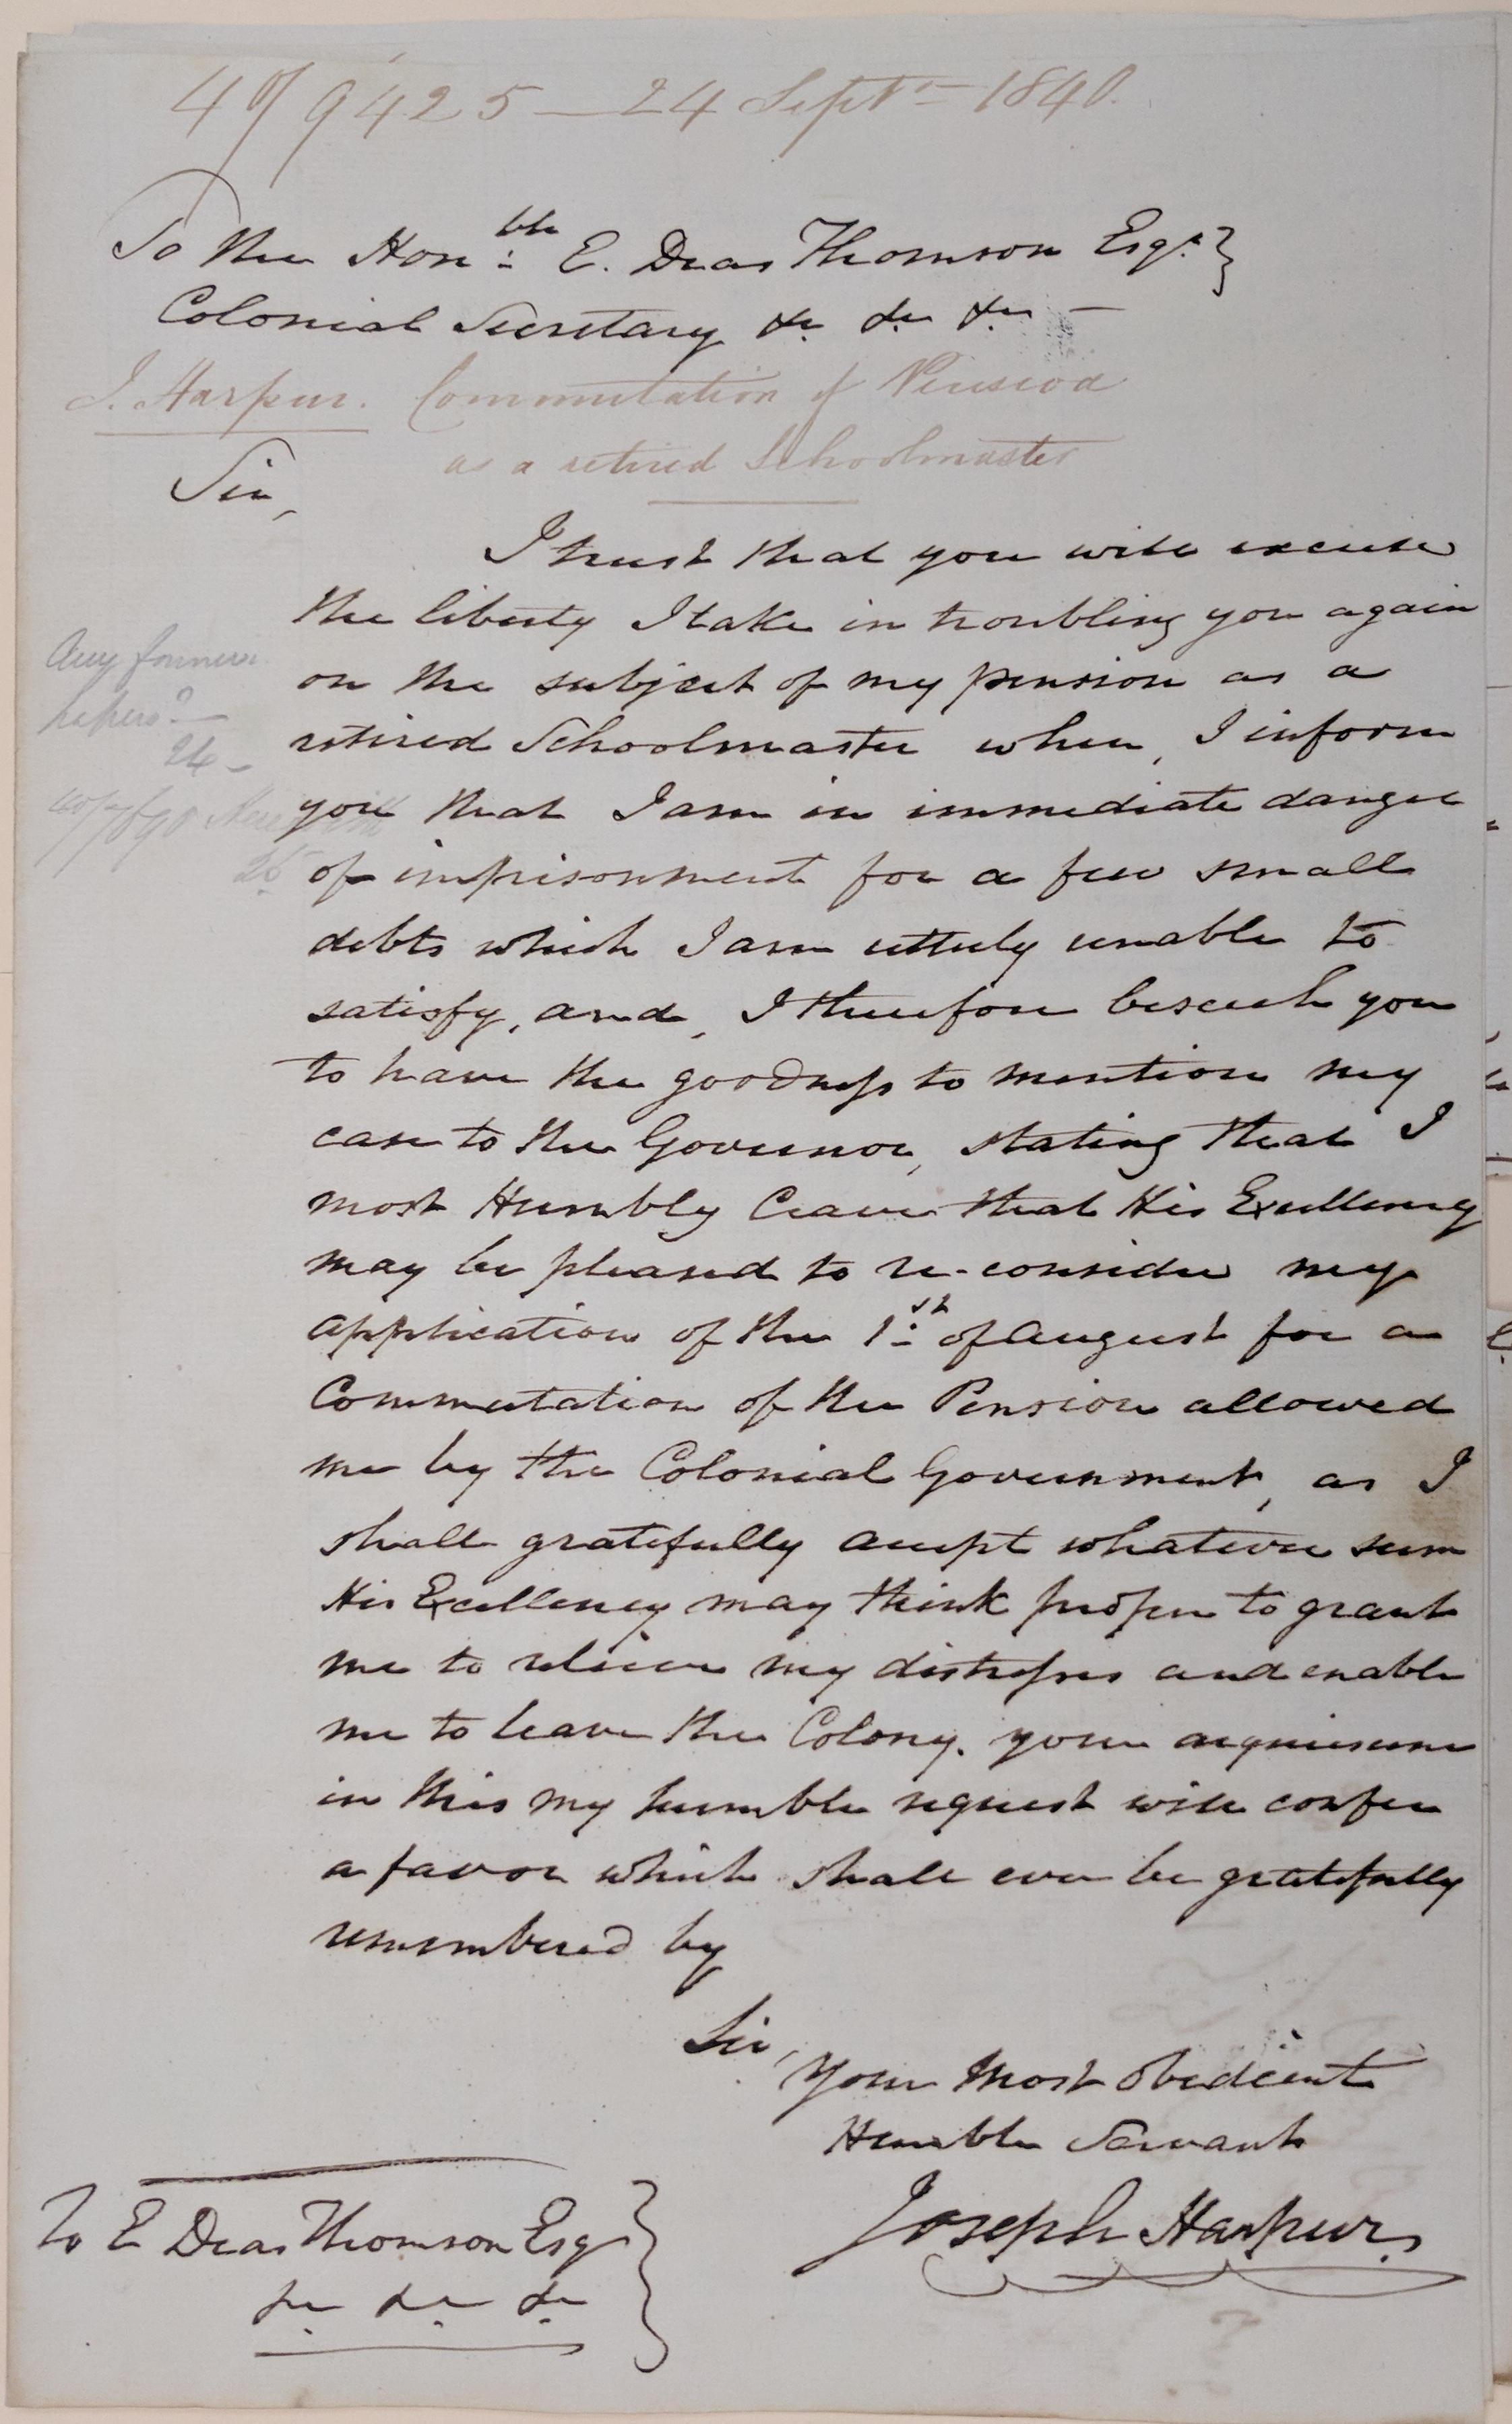 40/9425 — 24 Septr = 1840.
To the Honble E. Deas Thomson Esqr. }
Colonial Secretary &c &c &c —
J. Harpur. Commutation of Pension
as a retired Schoolmaster
Sir,
I trust that you will excuse
the liberty I take in troubling you again
on the subject of my pension as a
retired Schoolmaster when, I inform
you that I am in immediate danger
of imprisonment for a few small
debts which I am utterly unable to
satisfy, and, I therefore beseech you
to have the goodness to mention my
case to the Governor, stating that I
most Humbly Crave that His Excellency
may be pleased to re-consider my
application of the 1st of August for a
Commutation of the Pension allowed
me by the Colonial Government, as I
shall gratefully accept whatever sum
His Excellency may think proper to grant
me to relieve my distresses and enable
me to leave the Colony. your acquiescence
in this my humble request will confer
a favor which shall ever be gratefully
remembered by
Sir,
Your Most Obedient
Humble Servant
Joseph Harpur
To E Deas Thomson Esqr }
&c &c &c
Any former
papers?—
24 —
25